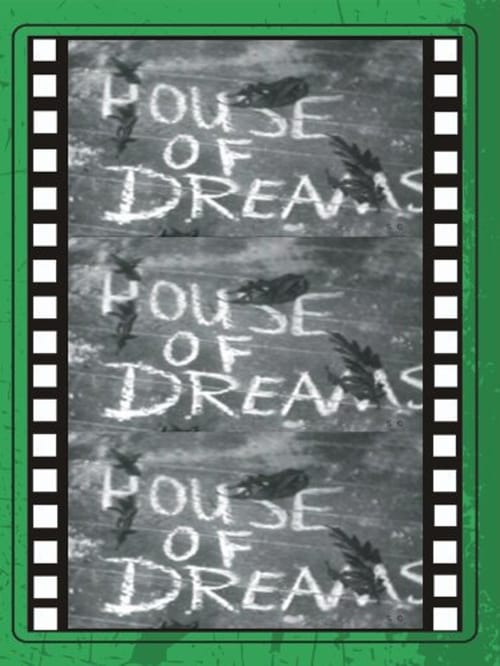 HOUSE
OF
DREAMS
HOUSE
OF
DREAMS
HOUSE
OF
DREAMS